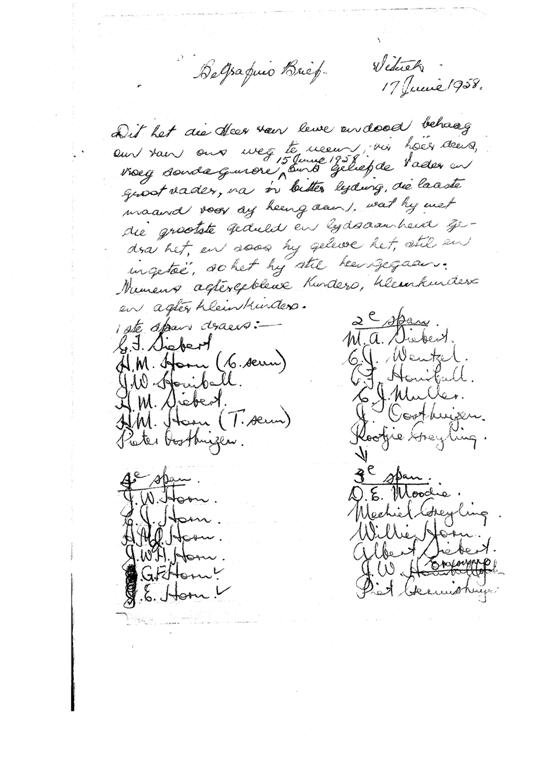 Begrafnis Brief.
17 Junie 1958.
Dit het die Heer van lewe en dood behaag
om van ons weg te neem, vir hoër diens,
vroeg sondagmore, 15 Junie 1958 ons geliefde Vader en
groot vader, na 'n bitter lyding, die laaste
maand voor sy heengaan, wat hy met
die grootste geduld en lydsaamheid ge-
dra het, en soos hy gelewe het, stil en
ingetoë, so het hy stil heengegaan.
Namens agtergeblewe kinders, kleinkinders
en agterkleinkinders.
1ste span draers:-
G. F. Siebert
H. M. Horn (C. seun)
J. W. Honiball.
H. M. Siebert.
H. M. Horn (T. seun)
Pieter Oosthuizen.
2e span.
M. A. Siebert.
C. J. Wentzel.
C. F. Honiball.
C. J. Muller.
J. Oosthuizen.
Kootjie Greyling.
3e span.
D. E. Moodie.
Machiel Greyling.
Willie Horn.
Albert Siebert.
J. W.
Piet
4e span.
J. W. Horn.
C. J. Horn.
H. M. J. Horn.
J. W. H. Horn.
G. F. Horn.
J. E. Horn.